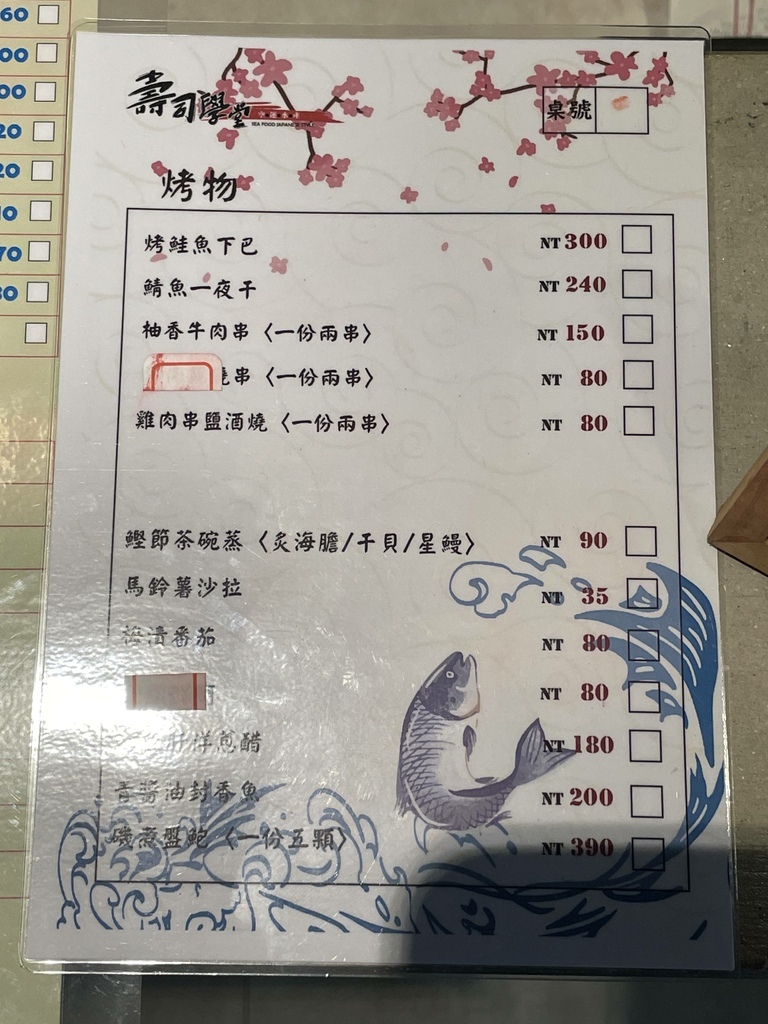 60
00
00
20
20
10
70
80
壽司學堂
SEA FOOD JAPANESE
桌號
烤物
烤鮭魚下巴 NT 300
鯖魚一夜干 NT 240
柚香牛肉串〈一份兩串〉 NT 150
燒串〈一份兩串〉 NT 80
雞肉串鹽酒燒〈一份兩串〉 NT 80
鰹節茶碗蒸〈炙海膽/干貝/星鰻〉 NT 90
馬鈴薯沙拉 NT 35
梅漬番茄 NT 80
NT 80
肝洋蔥醋 NT 180
青醬油封香魚 NT 200
磯煮盤鮑〈一份五顆〉 NT 390